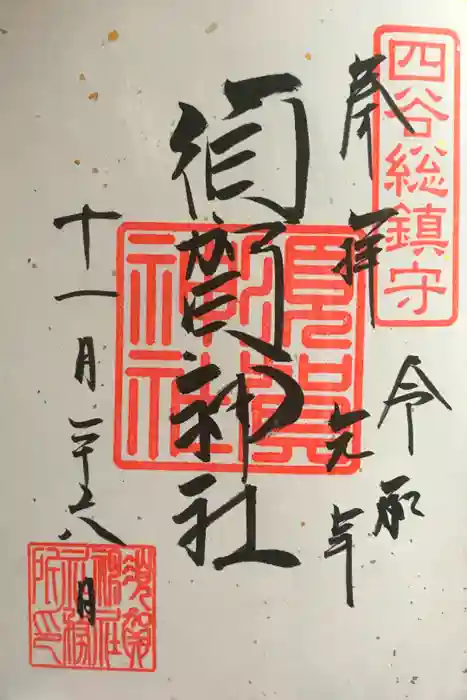 四谷総鎮守
奉拝
令和
元年
須賀神社
須賀
神社
十一月二十六日
須賀
神社
社務
所印